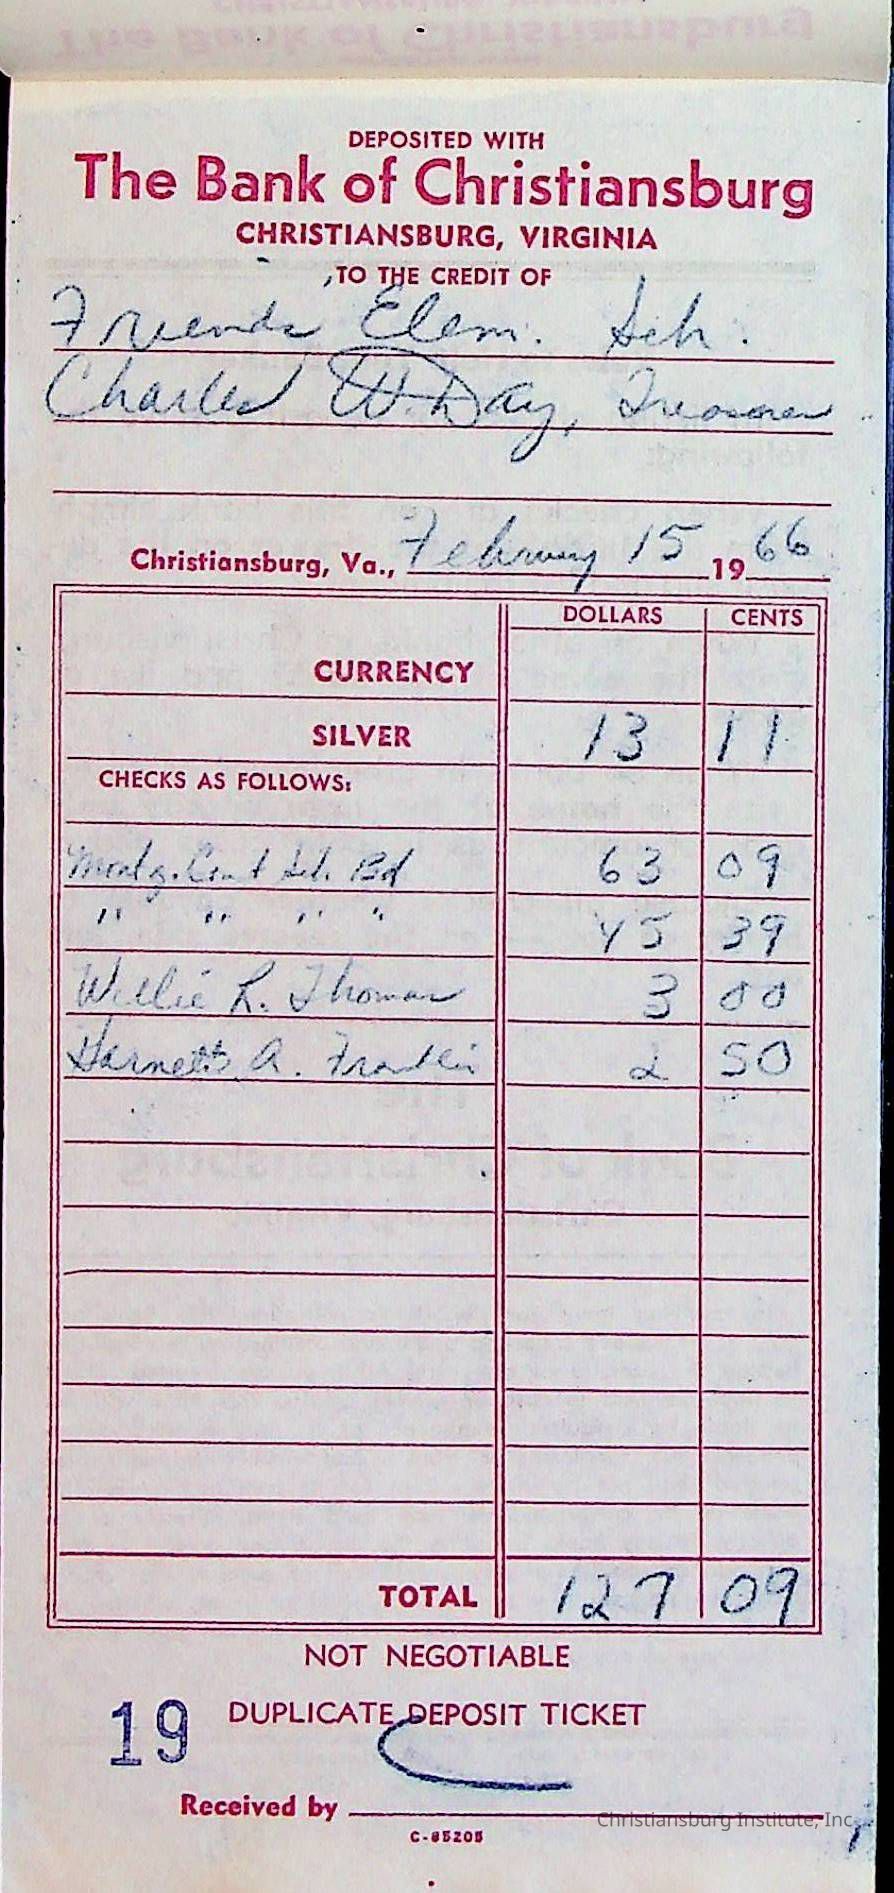 DEPOSITED WITH
The Bank of Christiansburg
CHRISTIANSBURG, VIRGINIA
TO THE CREDIT OF
Friends Elem. Sch.
Charles W Day, Treasurer
Christiansburg, Va., February 15 19 66
DOLLARS CENTS
CURRENCY
SILVER 13 11
CHECKS AS FOLLOWS:
Montg. Sch. Bd 63 09
" " " " 45 39
Willie R. Thomas 3 00
A. 2 50
TOTAL 127 09
NOT NEGOTIABLE
19 DUPLICATE DEPOSIT TICKET
Received by
Christiansburg Institute, Inc
C-85205